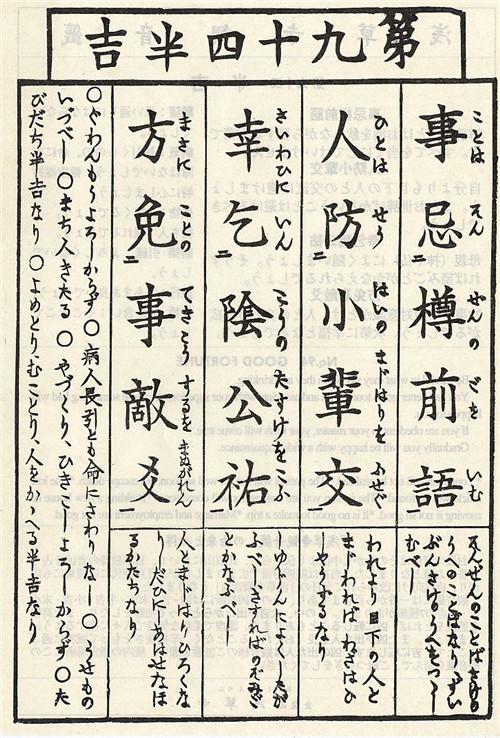 第九十四半吉
ことは えん ぜんの ごを いむ
事忌二樽前語一
ゑんぜんのことばさけの
うへのことばなりずい
むべし
ひとは せう はいの まじはりを ふせぐ
人防二小輩交一
われより目下の人と
まじわればわざはひ
しやうずるなり
さわひに いん こうの たすけを こふ
幸乞二陰公祐一
しゆゐんによくたが
ふべしさすればのぞみご
とかなふべし
まさに ことの てきこう するを まぬがれん
方免二事敵爻一
人とまじはりひろくな
りしだひにしあはせなほ
るかたちなり
〇ぐわんもうよろしからず〇病人長引とも命にさわりなし〇うせもの
いづべし〇まち人きたる〇やづくり、ひきこしよろしからず〇た
びだち半吉なり〇よめとり、むことり、人をかゝへる半吉なり